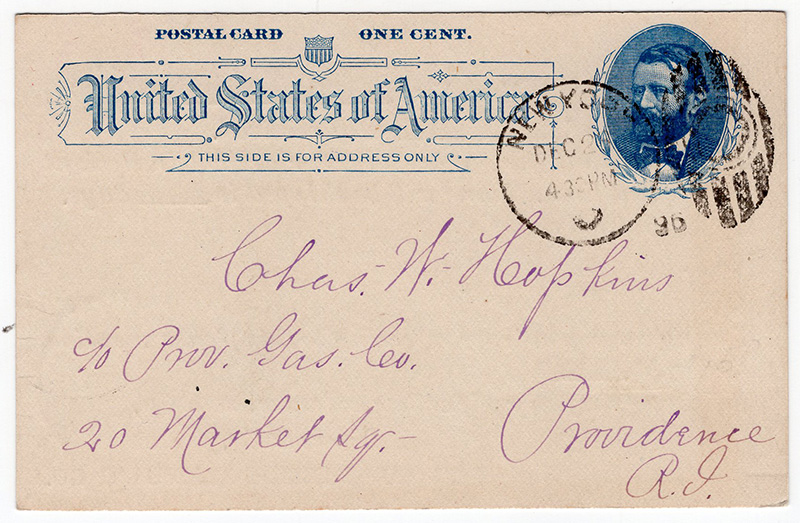 POSTAL CARD ONE CENT.
United States of America
THIS SIDE IS FOR ADDRESS ONLY
NEW YORK
DEC 2
4-30 PM
96
Chas. W. Hopkins
c/o Prov. Gas. Co.
20 Market Sq.-
Providence
R.I.